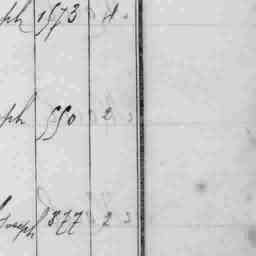 ph 1573 4
ph 550 2 3
Joseph 377 2 3